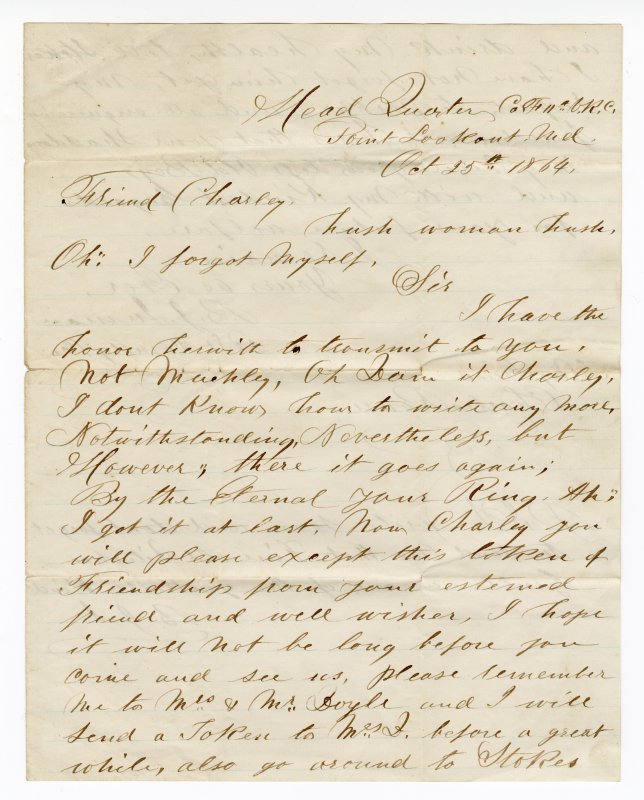 Head Quarter Co F 11th V.R.C.
Point Lookout Md.
Oct 25th 1864.
Friend Charley.
hush woman hush,
Oh! I forgot Myself.
Sir
I have the
honor herwith to transmit to you,
Not Muchly, Oh Dam it Charley,
I dont Know how to write any More,
Notwithstanding, Nevertheless, but
However; there it goes again;
By the Eternal your Ring. Ah!
I got it at last. Now Charley you
will please except this token of
Friendship from your estemed
friend and well wisher, I hope
it will not be long before you
come and see us, please remember
Me to Mrs & Mr. Doyle and I will
Send a Token to Mrs D. before a great
while, also go around to Stokes